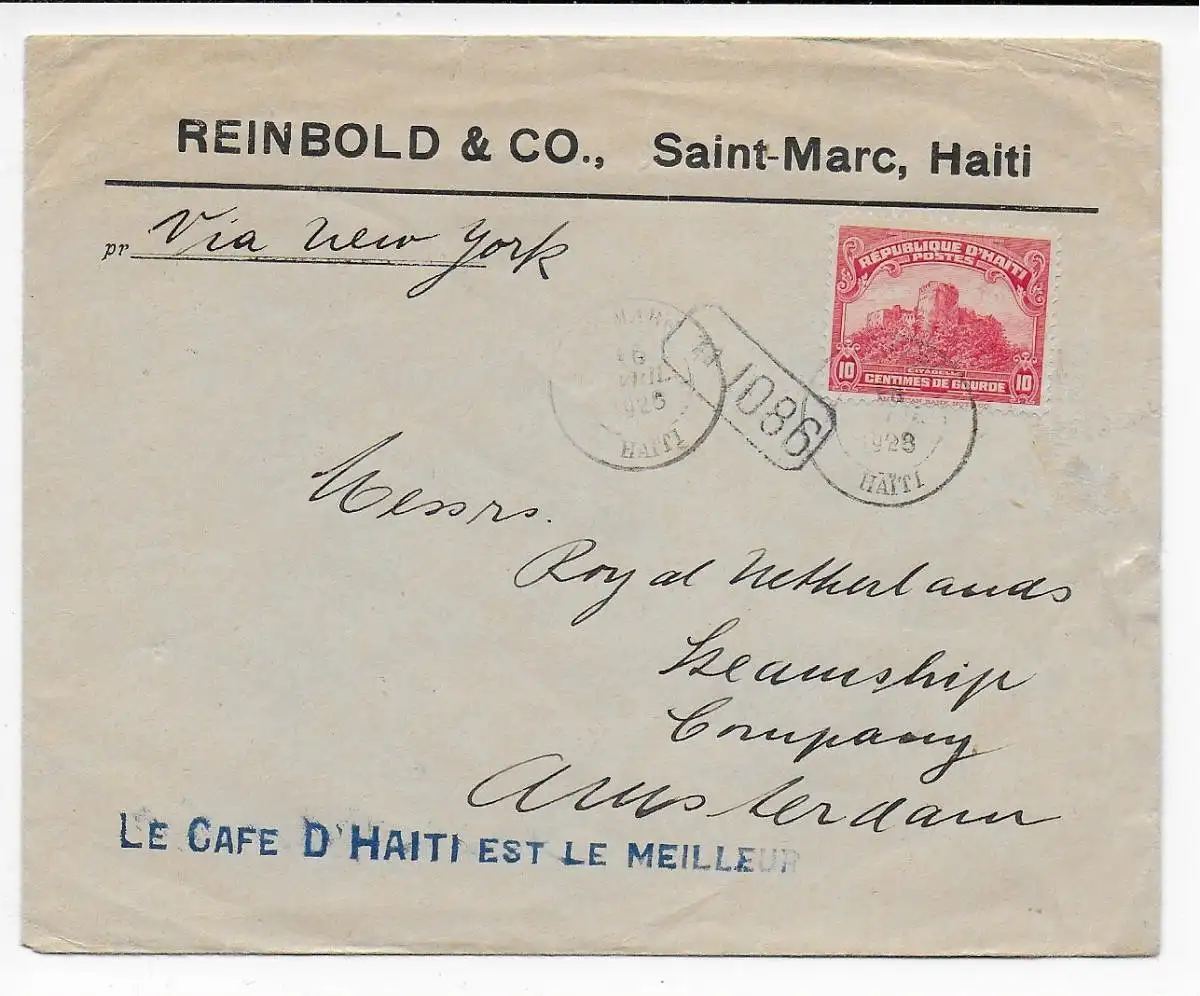 REINBOLD & CO., Saint-Marc, Haiti
pr Via New York
REPUBLIQUE D'HAITI
POSTES
10 CITADELLE 10
CENTIMES DE GOURDE
MARC
HAÏTI
1086
1928
HAÏTI
Messrs.
Royal Netherlands
Steamship
Company
Amsterdam
LE CAFE D'HAITI EST LE MEILLEUR